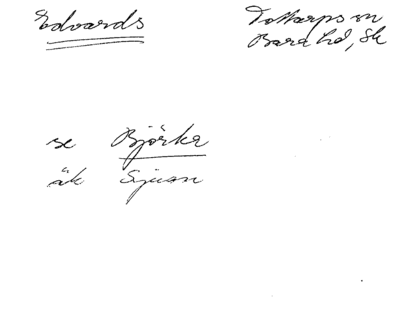 Edvards
Tottarps sn
Bara hd, Sk
se Björka
äk Sjuan